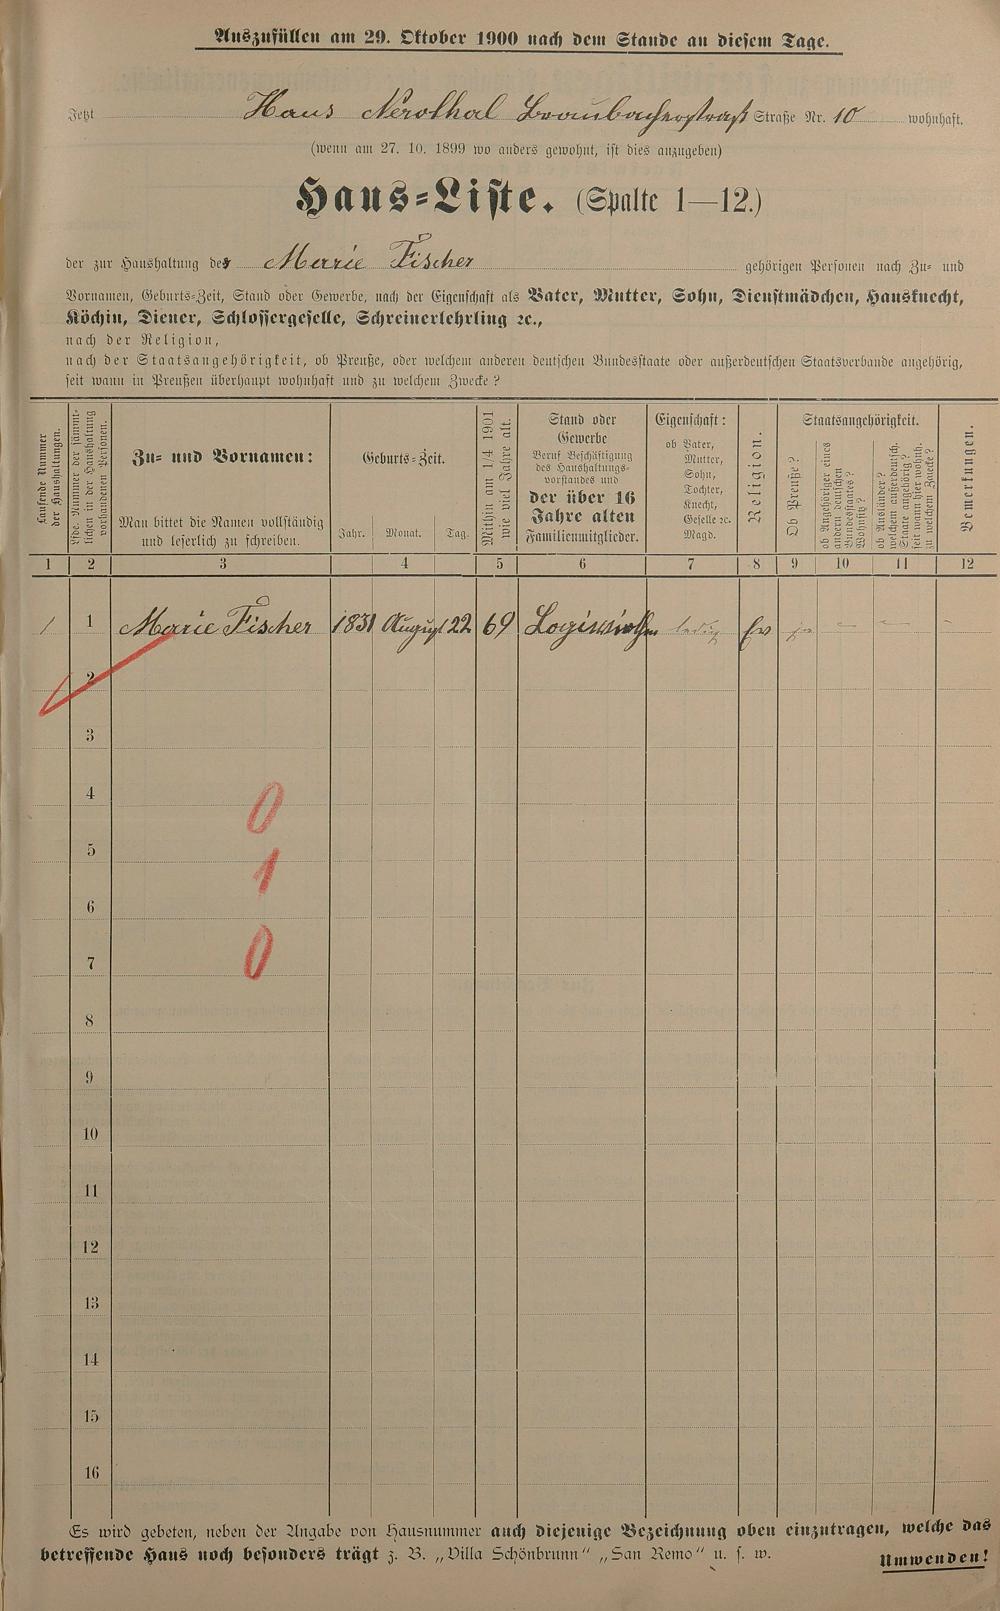 Auszufüllen am 29. Oktober 1900 nach dem Stande an diesem Tage.
Jetzt Haus Nerothal Braubacherstraß Straße Nr. 10 wohnhaft.
(wenn am 27. 10. 1899 wo anders gewohnt, ist dies anzugeben)
Haus-Liste. (Spalte 1—12.)
der zur Haushaltung der Marie Fischer gehörigen Personen nach Zu- und
Vornamen, Geburts-Zeit, Stand oder Gewerbe, nach der Eigenschaft als Vater, Mutter, Sohn, Dienstmädchen, Hausknecht,
Köchin, Diener, Schlossergeselle, Schreinerlehrling ꝛc.,
nach der Religion,
nach der Staatsangehörigkeit, ob Preuße, oder welchem anderen deutschen Bundesstaate oder außerdeutschen Staatsverbande angehörig,
seit wann in Preußen überhaupt wohnhaft und zu welchem Zwecke?
Laufende Nummer
der Haushaltungen.
Lfde. Nummer der sämmt-
lichen in der Haushaltung
vorhandenen Personen.
Zu- und Vornamen:
Man bittet die Namen vollständig
und leserlich zu schreiben.
Geburts-Zeit.
Jahr. Monat. Tag.
Mithin am 1/4 1901
wie viel Jahre alt.
Stand oder
Gewerbe
Beruf Beschäftigung
des Haushaltungs-
vorstandes und
der über 16
Jahre alten
Familienmitglieder.
Eigenschaft:
ob Vater,
Mutter,
Sohn,
Tochter,
Knecht,
Geselle ꝛc.
Magd.
Religion.
Staatsangehörigkeit.
Ob Preuße?
ob Angehöriger eines
andern deutschen
Bundesstaates?
Wohnsitz?
ob Ausländer?
welchem außerdeutsch.
Staate angehörig?
seit wann hier wohnh.
zu welchem Zwecke?
Bemerkungen.
1 2 3 4 5 6 7 8 9 10 11 12
1 1 Marie Fischer 1831 August 22 69 Logiswirthin ledig Ev ja — — —
2
3
4
0
5
1
6
7
0
8
9
10
11
12
13
14
15
16
Es wird gebeten, neben der Angabe von Hausnummer auch diejenige Bezeichnung oben einzutragen, welche das
betreffende Haus noch besonders trägt z. B. „Villa Schönbrunn" „San Remo" u. s. w.
Umwenden!